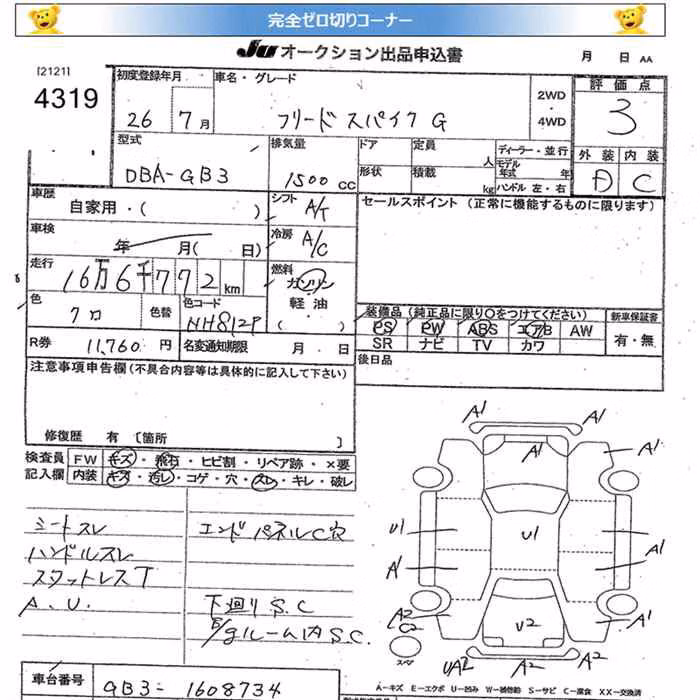 完全ゼロ切りコーナー
JU オークション出品申込書 月 日 AA
[2121]
4319
初度登録年月 車名・グレード
26 7月 フリード スパイク G
2WD
・
4WD
評価点
3
型式 排気量 ドア 定員 人 ディーラー・並行
DBA-GB3 1500 CC
形状 積載 kg モデル年式 年
ハンドル 左・右
外装 内装
D C
車歴 自家用・( )
シフト A/T
セールスポイント (正常に機能するものに限ります)
車検 年 月( 日)
冷房 A/C
走行 16万6千772km
燃料 ガソリン・軽油( )
色 クロ 色替 色コード NH812P
装備品(純正品に限り○をつけてください) 新車保証書
PS PW ABS エアB AW 有・無
SR ナビ TV カワ
R券 11,760 円 名変通知期限 月 日
後日品
注意事項申告欄(不具合内容等は具体的に記入して下さい)
修復歴 有 〔箇所 〕
検査員 FW キズ・飛石・ヒビ割・リペア跡・×要
記入欄 内装 キズ・汚レ・コゲ・穴・スレ・キレ・破レ
シートスレ
ハンドルスレ
スワットレスT
A.U.
エンドパネルC穴
下廻りS.C
B/gルーム内S.C.
A1 A1
A1 A1
U1 U1 A1
A1
A2 A1
C2
U2
UA2 A2
スペア
車台番号 GB3-1608734
A-キズ E-エクボ U-凹み W-補修跡 S-サビ C-腐食 XX-交換済